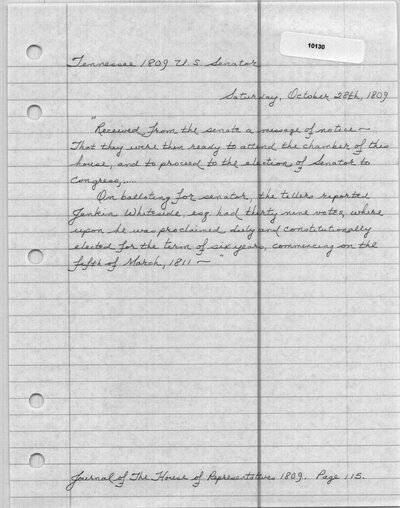 10130
Tennessee 1809 U.S. Senator
Saturday, October 28th, 1809
"Received from the senate a message of notice ~
That they were then ready to attend the chamber of this
house, and to proceed to the election of Senator to
Congress,.....
On balloting for senator, the tellers reported
Jenkin Whiteside, esq. had thirty nine votes, where
upon he was proclaimed duly and constitutionally
elected for the term of six years, commencing on the
fifth of March, 1811 ~ "
Journal of The House of Representatives 1809. Page 115.